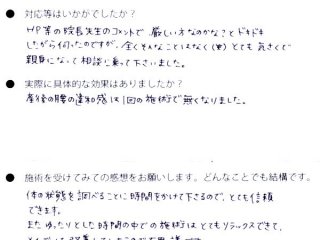 ● 対応等はいかがでしたか？
HP等の院長先生のコメントで 厳しい方なのかな？とドキドキ
しながら伺ったのですが、全くそんなことはなく(笑)とても気さくで
親身になって相談に乗って下さいました。
● 実際に具体的な効果はありましたか？
産後の腰の違和感は1回の施術で無くなりました。
● 施術を受けてみての感想をお願いします。どんなことでも結構です。
体の状態を調べることに時間をかけて下さるので、とても信頼
できます。
また ゆったりとした時間の中での施術はとてもリラックスできて、